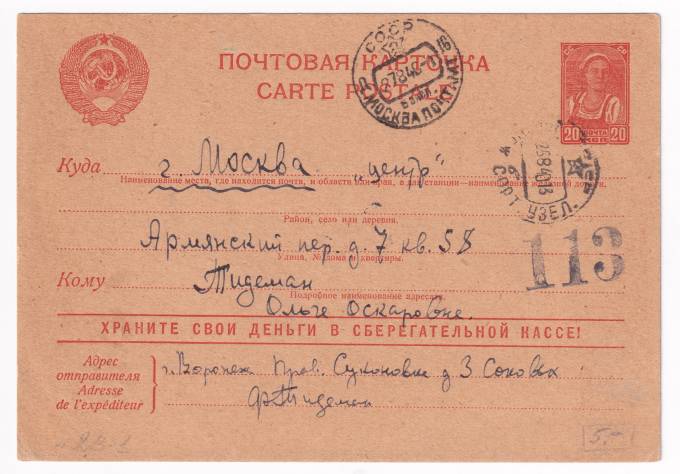 ПОЧТОВАЯ КАРТОЧКА
CARTE POSTALE
СССР
МОСКВА ПОЧТАМТ
20 ПОЧТА 20
Куда г. Москва „центр"
Наименование места, где находится почта, и области или края, а для станции—наименование железной дороги.
Район, село или деревня.
Армянский пер. д. 7 кв. 58
Улица, № дома и квартиры.
СОРТ. УЗЕЛ.
113
Кому Тидеман
Подробное наименование адресата.
Ольге Оскаровне.
ХРАНИТЕ СВОИ ДЕНЬГИ В СБЕРЕГАТЕЛЬНОЙ КАССЕ!
Адрес
отправителя
Adresse
de l'expéditeur
г. Воронеж Д 3
Ф Тидеман
5.-